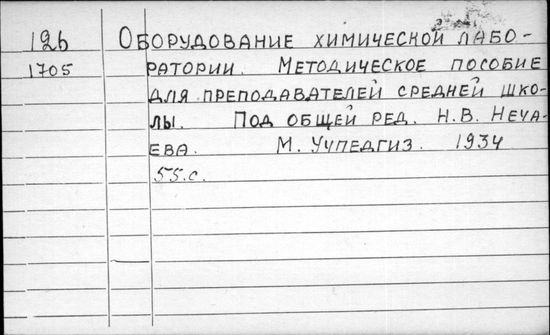 126 Оборудование химической лабо-
1705 ратории. Методическое пособие
для преподавателей средней шко-
лы. Под общей ред. Н.В. Неча-
ева. М. Учпедгиз. 1934
55.с.